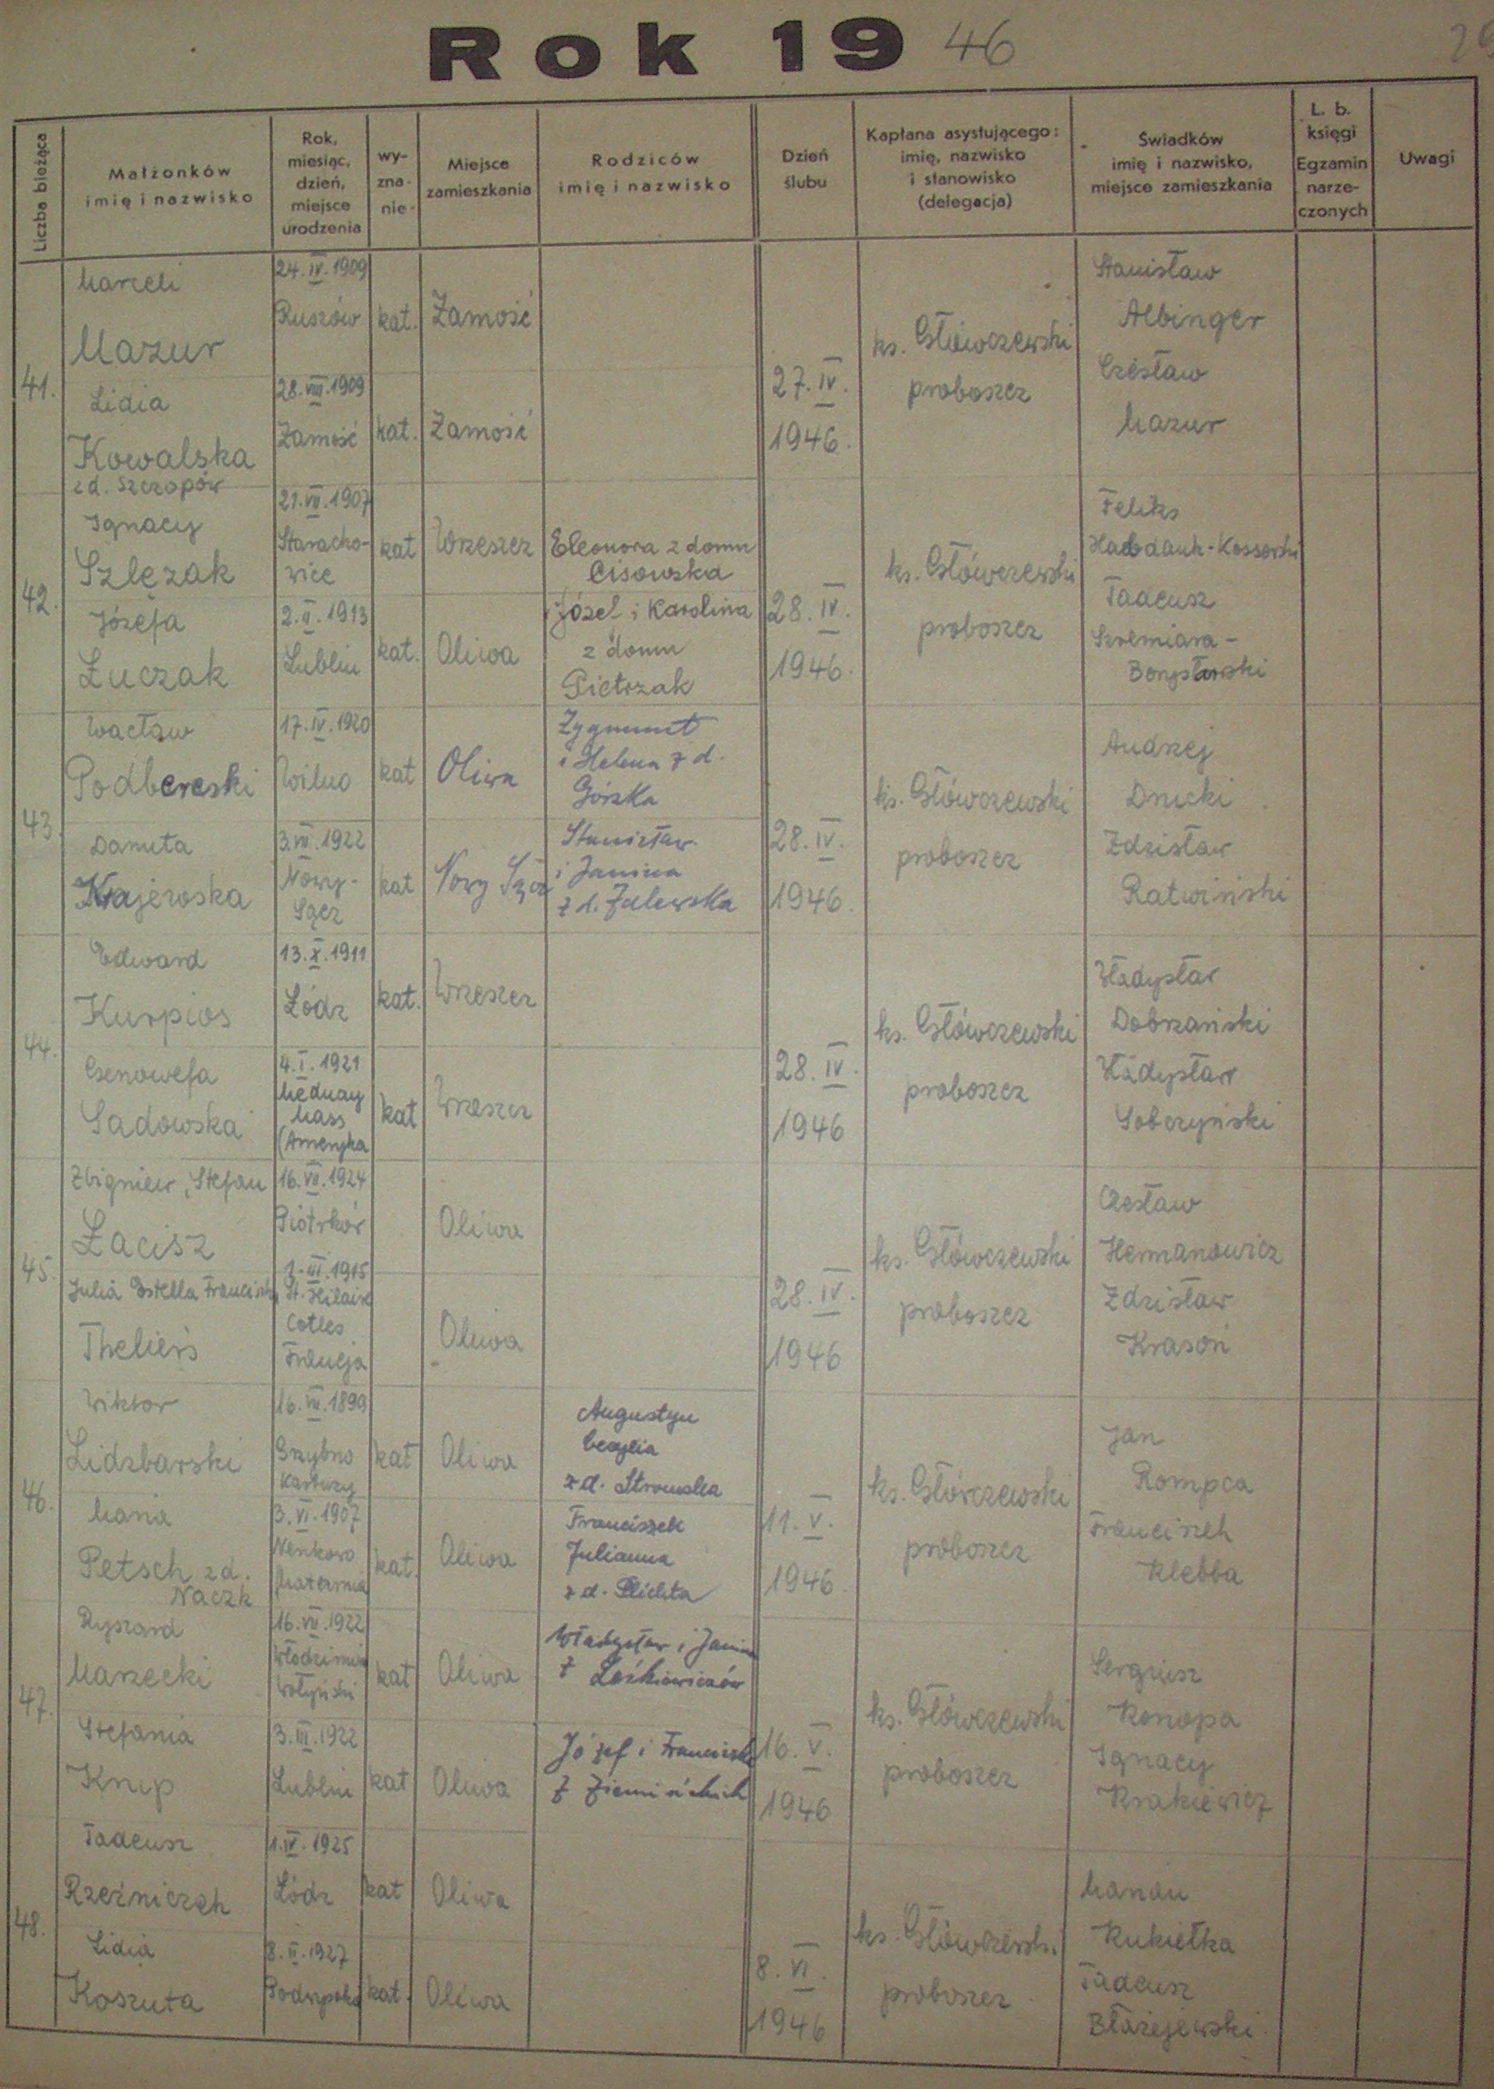 Rok 19 46
Liczba bieżąca
Małżonków
imię i nazwisko
Rok,
miesiąc,
dzień,
miejsce
urodzenia
wy-
zna-
nie
Miejsce
zamieszkania
Rodziców
imię i nazwisko
Dzień
ślubu
Kapłana asystującego:
imię, nazwisko
i stanowisko
(delegacja)
Świadków
imię i nazwisko,
miejsce zamieszkania
L. b.
księgi
Egzamin
narze-
czonych
Uwagi
41.
Marceli
Mazur
24.IV.1909
Ruszów
kat.
Zamość
Lidia
Kowalska
zd. Szczopów
28.VIII.1909
Zamość
kat.
Zamość
27.IV.
1946.
ks. Główczewski
proboszcz
Stanisław
Albinger
Czesław
Mazur
42.
Ignacy
Szlęzak
21.VII.1907
Staracho-
wice
kat
Wrzeszcz
Eleonora z domu
Cisowska
Józefa
Łuczak
2.II.1913
Lublin
kat.
Oliwa
Józef i Karolina
z domu
Pietrzak
28.IV.
1946.
ks. Główczewski
proboszcz
Feliks
Kossowski
Tadeusz
43.
Wacław
Podbereski
17.IV.1920
Wilno
kat
Oliwa
Zygmunt
i Helena z d.
Górska
Danuta
Krajewska
3.VII.1922
Nowy-
Sącz
kat
Nowy Sącz
Stanisław
i Janina
z d. Zalewska
28.IV.
1946.
ks. Główczewski
proboszcz
Andrzej
Dnicki
Zdzisław
Ratwiński
44.
Edward
Kurpios
13.X.1911
Łódz
kat.
Wrzeszcz
Genowefa
Sadowska
4.I.1921
Mass
(Ameryka
kat
Wrzeszcz
28.IV.
1946
ks. Główczewski
proboszcz
Władysław
Dobrzański
Władysław
Sobczyński
45.
Zbigniew, Stefan
Łacisz
16.VII.1924
Piotrków
Oliwa
Julia Estella
Theliers
III.1915
St. Hilaire
Cotles
Francja
Oliwa
28.IV.
1946
ks. Główczewski
proboszcz
Czesław
Hermanowicz
Zdzisław
Krasoń
46.
Wiktor
Lidzbarski
16.VII.1899
Grzybno
Kartuzy
kat
Oliwa
Augustyn
Cecylia
z d. Stromska
Maria
Petsch zd.
Naczk
3.VI.1907
kat.
Oliwa
Franciszek
Julianna
z d. Plichta
11.V.
1946.
ks. Główczewski
proboszcz
Jan
Rompca
Franciszek
Klebba
47.
Ryszard
Marzecki
16.VII.1922
Włodzimierz
Wołyński
kat
Oliwa
Władysław i Janina
z Leśkiewiczów
Stefania
Knip
3.III.1922
Lublin
kat
Oliwa
Józef i Franciszka
z Ziemińskich
16.V.
1946
ks. Główczewski
proboszcz
Sergiusz
Konopa
Ignacy
Krakiewicz
48.
Tadeusz
Rzeźniczek
1.IV.1925
Łódz
kat
Oliwa
Lidia
Koszuta
8.II.1927
kat.
Oliwa
8.VI.
1946
ks. Główczewski
proboszcz
Marian
Kukiełka
Tadeusz
Błażejewski